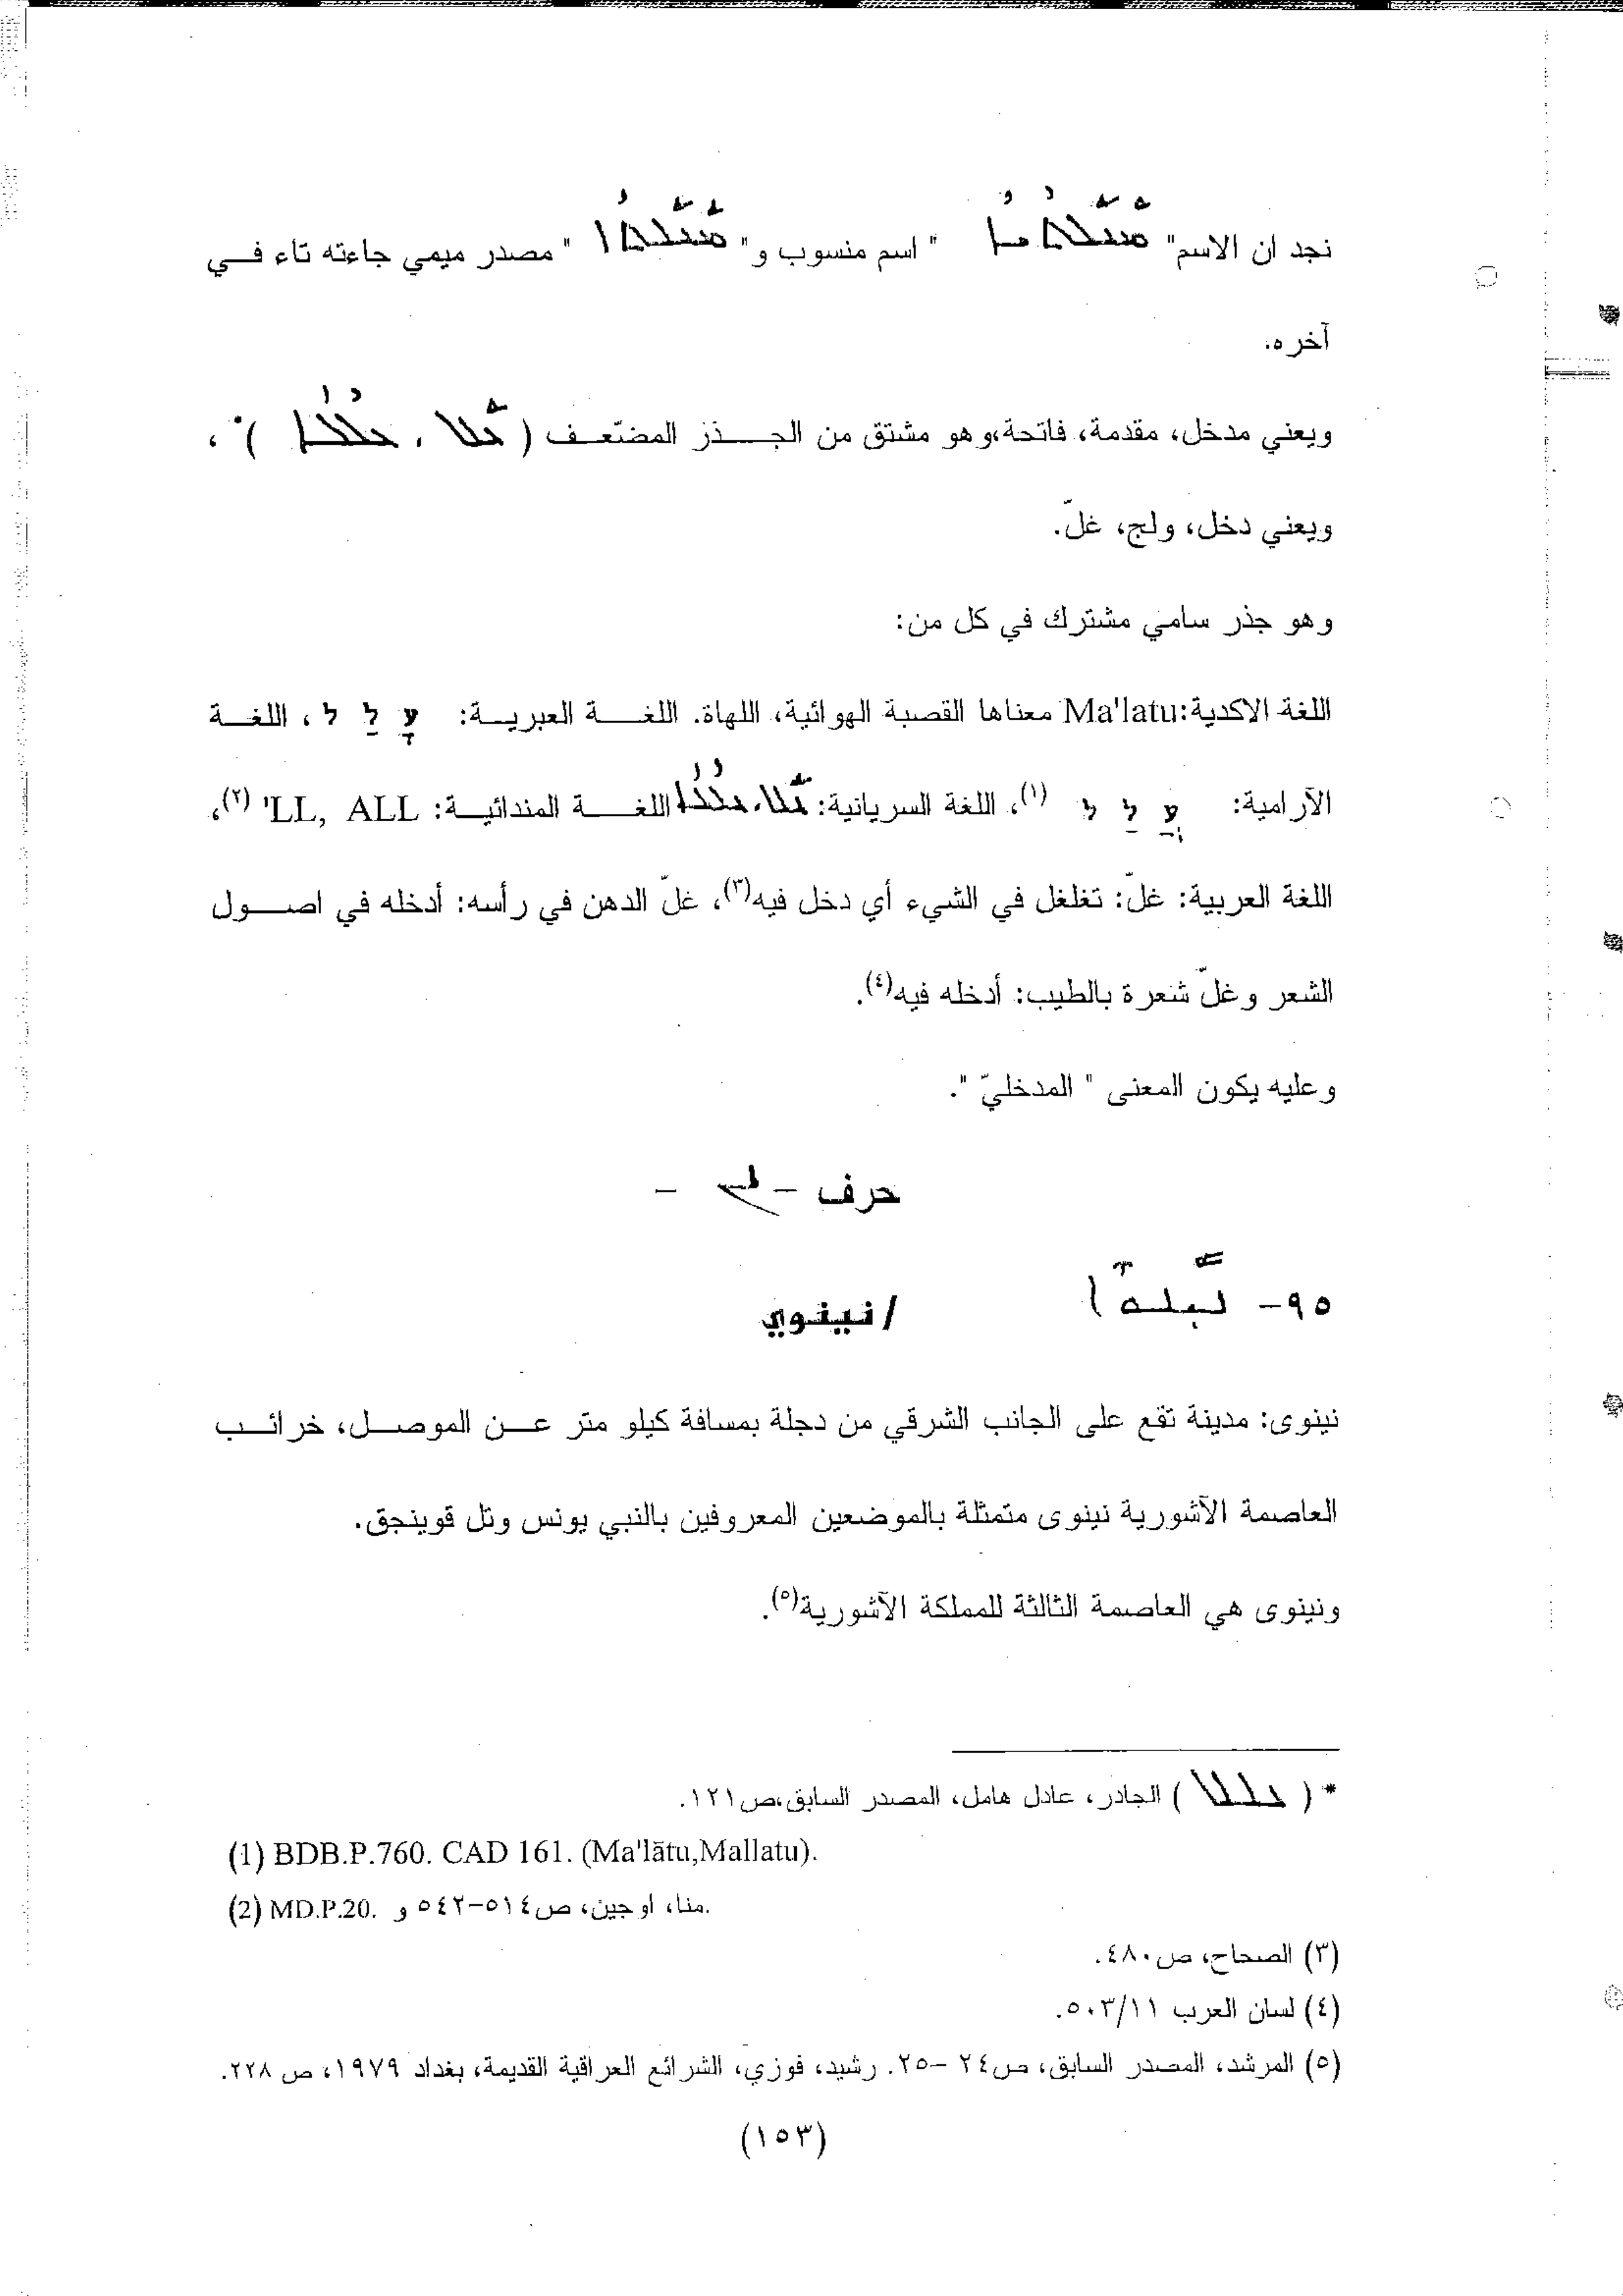 نجد ان الاسم" ܡܥܠܬܝܐ " اسم منسوب و" ܡܥܠܬܐ " مصدر ميمي جاءته تاء في
آخره.
ويعني مدخل، مقدمة، فاتحة،وهو مشتق من الجذز المضّعف ( ܥܠ ، )*،
ويعني دخل، ولج، غلّ.
وهو جذر سامي مشترك في كل من:
اللغة الاكدية:Ma'latu معناها القصبة الهوائية، اللهاة. اللغة العبرية: עָלַל ، اللغة
الآرامية: עֲלַל (١)، اللغة السريانية: ܥܠ، اللغة المندائية: LL, ALL' (٢)،
اللغة العربية: غلّ: تغلغل في الشيء أي دخل فيه(٣)، غلّ الدهن في رأسه: أدخله في اصول
الشعر وغلّ شعرة بالطيب: أدخله فيه(٤).
وعليه يكون المعنى " المدخليّ ".
حرف - ܢ -
٩٥- ܢܝܢܘܐ /نينوي
نينوى: مدينة تقع على الجانب الشرقي من دجلة بمسافة كيلو متر عن الموصل، خرائب
العاصمة الآشورية نينوى متمثلة بالموضعين المعروفين بالنبي يونس وتل قوينجق.
ونينوى هي العاصمة الثالثة للمملكة الآشورية(٥).
* ( ) الجادر، عادل هامل، المصدر السابق،ص١٢١.
(1) BDB.P.760. CAD 161. (Ma'lātu,Mallatu).
(2) MD.P.20. منا، اوجين، ص٥١٤-٥٤٢ و.
(٣) الصحاح، ص٤٨٠.
(٤) لسان العرب ٥٠٣/١١.
(٥) المرشد، المصدر السابق، ص٢٤ -٢٥. رشيد، فوزي، الشرائع العراقية القديمة، بغداد ١٩٧٩، ص ٢٢٨.
(١٥٣)